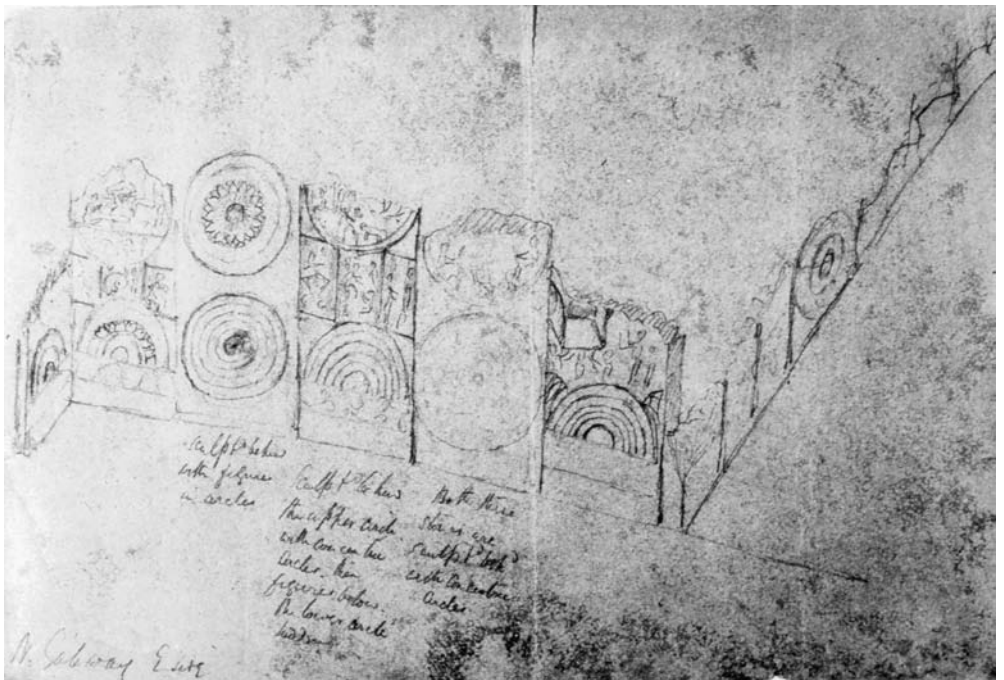 Sculpt.d behind
with figures
in circles
Sculpt.d behind
the upper circle
with concentric
circles. then
figures below.
The lower circle
hidden
Both these
stones are
sculpt.d both
with concentric
circles
N. Gateway E side